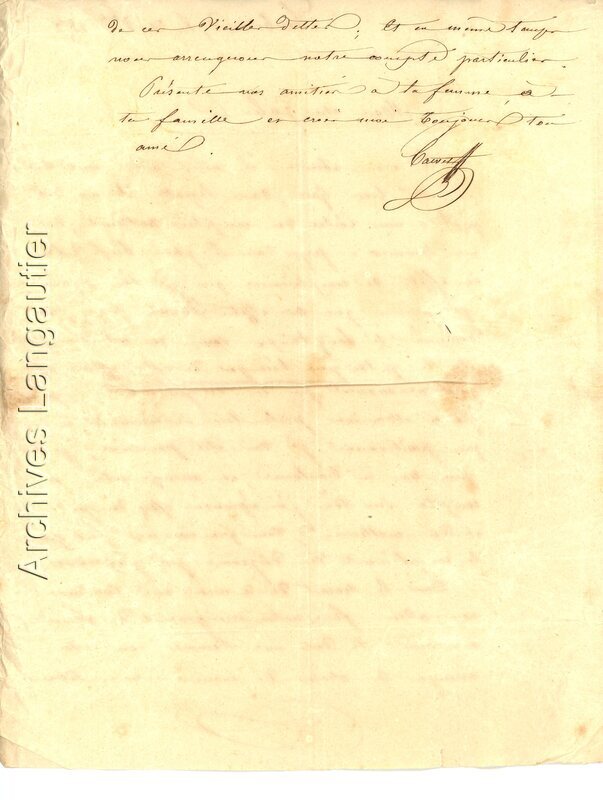 de ces Vieilles dettes, Et en même temps
nous arrengerons notre compte particulier.
Présente nos amitiés à ta femme, à
ta famille et crois moi toujours ton
ami.
Archives Langautier